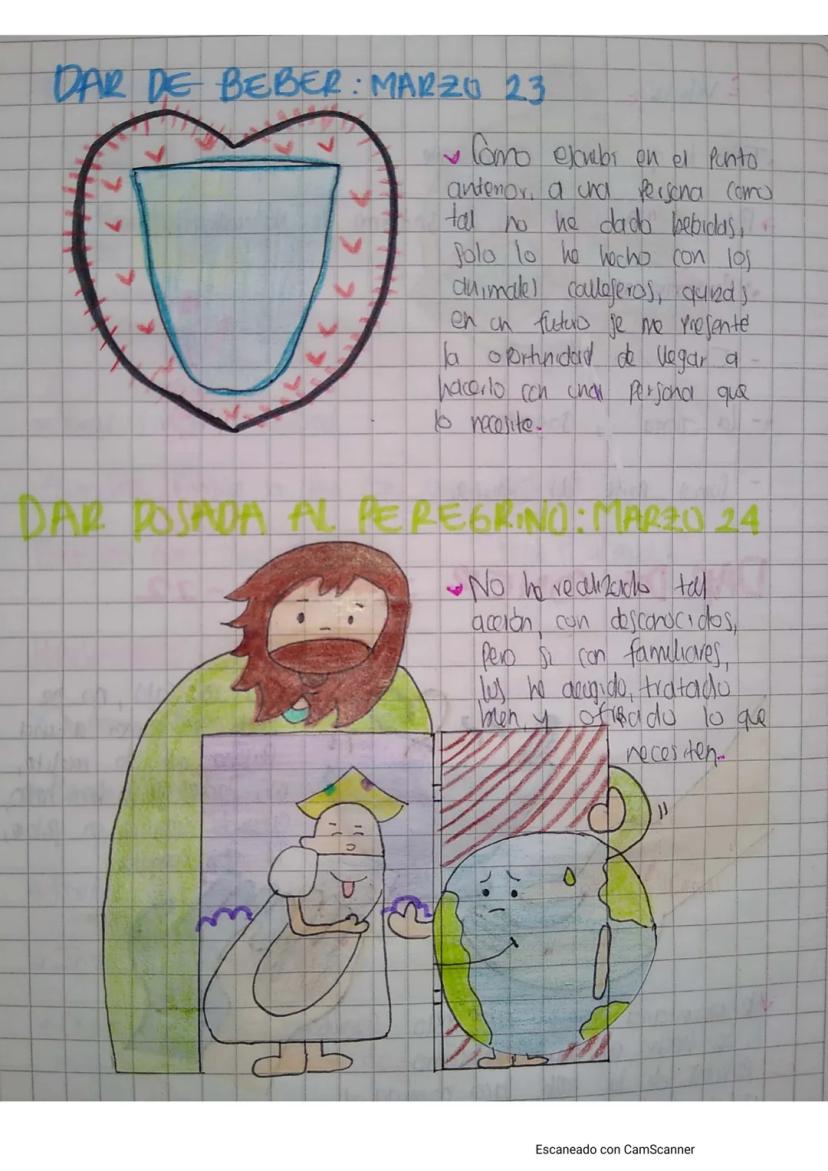 DAR DE BEBER: MARZO 23
Como escribi en el punto
anterior, a una persona como
tal no he dado bebidas,
solo lo he hecho con los
animales callejeros, quizás
en un futuro se me presente
la oportunidad de llegar a
hacerlo con una persona que
lo necesite.
DAR POSADA AL PEREGRINO: MARZO 24
No he realizado tal
acción, con desconocidos,
pero si con familiares,
los he acogido, tratado
bien y ofrecido lo que
necesiten.
Escaneado con CamScanner